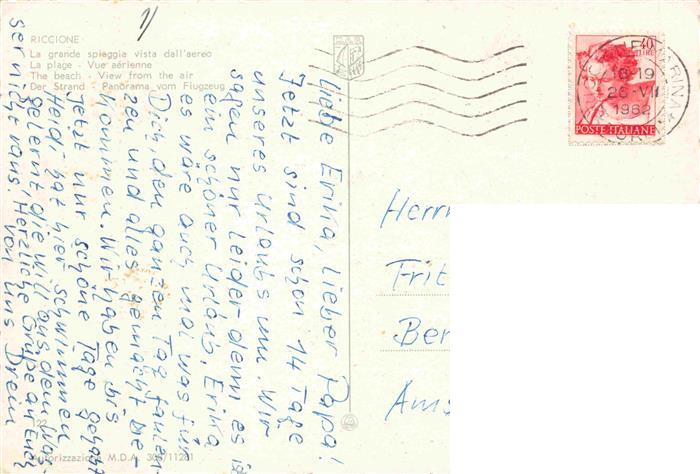 RICCIONE
La grande spiaggia vista dall'aereo
La plage - Vue aérienne
The beach - View from the air
Der Strand - Panorama vom Flugzeug
40
18-19
26-VII
1962
POSTE ITALIANE
Liebe Erika, lieber Papa!
Jetzt sind schon 14 Tage
unseres Urlaubs um. Wir
sagen nur leider denn es ist
ein schöner Urlaub, Erika
es wäre auch mal was für
Dich, den ganzen Tag faulen-
zen und alles gemacht be-
kommen. Wir haben bis
jetzt nur schöne Tage gehabt
Heidi hat hier schwimmen
gelernt, die will aus dem Was-
ser nicht raus. Herzliche Grüße an Euch
von uns Drein
Herrn
Frit
Ber
Ams
122
Autorizzazione M.D.A. 306/11281